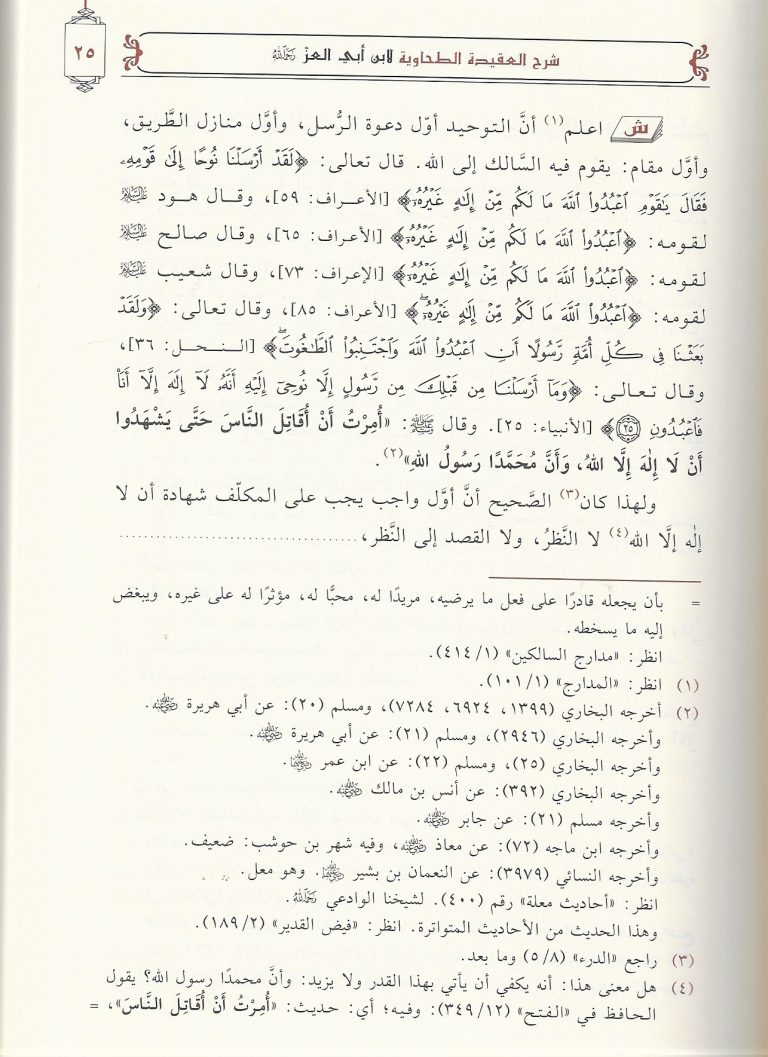 ٢٥
شرح العقيدة الطحاوية لابن أبي العزّ رَحِمَهُ اللهُ
ش اعلم(١) أنَّ التوحيد أوّل دعوة الرُّسل، وأوَّل منازل الطَّريق،
وأوَّل مقام: يقوم فيه السَّالك إلى الله. قال تعالى: ﴿لَقَدْ أَرْسَلْنَا نُوحًا إِلَىٰ قَوْمِهِۦ
فَقَالَ يَٰقَوْمِ ٱعْبُدُواْ ٱللَّهَ مَا لَكُم مِّنْ إِلَٰهٍ غَيْرُهُۥٓ﴾ [الأعراف: ٥٩]، وقال هود عَلَيْهِ السَّلَام
لقومه: ﴿ٱعْبُدُواْ ٱللَّهَ مَا لَكُم مِّنْ إِلَٰهٍ غَيْرُهُۥٓ﴾ [الأعراف: ٦٥]، وقال صالح عَلَيْهِ السَّلَام
لقومه: ﴿ٱعْبُدُواْ ٱللَّهَ مَا لَكُم مِّنْ إِلَٰهٍ غَيْرُهُۥٓ﴾ [الإعراف: ٧٣]، وقال شعيب عَلَيْهِ السَّلَام
لقومه: ﴿ٱعْبُدُواْ ٱللَّهَ مَا لَكُم مِّنْ إِلَٰهٍ غَيْرُهُۥٓ﴾ [الأعراف: ٨٥]، وقال تعالى: ﴿وَلَقَدْ
بَعَثْنَا فِي كُلِّ أُمَّةٍ رَّسُولًا أَنِ ٱعْبُدُواْ ٱللَّهَ وَٱجْتَنِبُواْ ٱلطَّٰغُوتَ﴾ [النحل: ٣٦]،
وقال تعالى: ﴿وَمَآ أَرْسَلْنَا مِن قَبْلِكَ مِن رَّسُولٍ إِلَّا نُوحِىٓ إِلَيْهِ أَنَّهُۥ لَآ إِلَٰهَ إِلَّآ أَنَا۠
فَٱعْبُدُونِ ٢٥﴾ [الأنبياء: ٢٥]. وقال ﷺ: «أُمِرْتُ أَنْ أُقَاتِلَ النَّاسَ حَتَّى يَشْهَدُوا
أَنْ لَا إِلٰهَ إِلَّا اللهُ، وَأَنَّ مُحَمَّدًا رَسُولُ اللهِ»(٢).
ولهذا كان(٣) الصَّحيح أنَّ أوَّل واجب يجب على المكلّف شهادة أن لا
إلٰه إلَّا الله(٤) لا النَّظرُ، ولا القصد إلى النَّظر، ......................................
= بأن يجعله قادرًا على فعل ما يرضيه، مريدًا له، محبًّا له، مؤثرًا له على غيره، ويبغض
إليه ما يسخطه.
انظر: «مدارج السالكين» (١/ ٤١٤).
(١) انظر: «المدارج» (١/ ١٠١).
(٢) أخرجه البخاري (١٣٩٩، ٦٩٢٤، ٧٢٨٤)، ومسلم (٢٠): عن أبي هريرة رَضِيَ اللهُ عَنْهُ.
وأخرجه البخاري (٢٩٤٦)، ومسلم (٢١): عن أبي هريرة رَضِيَ اللهُ عَنْهُ.
وأخرجه البخاري (٢٥)، ومسلم (٢٢): عن ابن عمر رَضِيَ اللهُ عَنْهُمَا.
وأخرجه البخاري (٣٩٢): عن أنس بن مالك رَضِيَ اللهُ عَنْهُ.
وأخرجه مسلم (٢١): عن جابر رَضِيَ اللهُ عَنْهُ.
وأخرجه ابن ماجه (٧٢): عن معاذ رَضِيَ اللهُ عَنْهُ، وفيه شهر بن حوشب: ضعيف.
وأخرجه النسائي (٣٩٧٩): عن النعمان بن بشير رَضِيَ اللهُ عَنْهُمَا. وهو معل.
انظر: «أحاديث معلة» رقم (٤٠٠). لشيخنا الوادعي رَحِمَهُ اللهُ.
وهذا الحديث من الأحاديث المتواترة. انظر: «فيض القدير» (٢/ ١٨٩).
(٣) راجع «الدرء» (٨/ ٥) وما بعد.
(٤) هل معنى هذا: أنه يكفي أن يأتي بهذا القدر ولا يزيد: وأنَّ محمدًا رسول الله؟ يقول
الحافظ في «الفتح» (١٢/ ٣٤٩): وفيه؛ أي: حديث: «أُمِرْتُ أَنْ أُقَاتِلَ النَّاسَ»، =